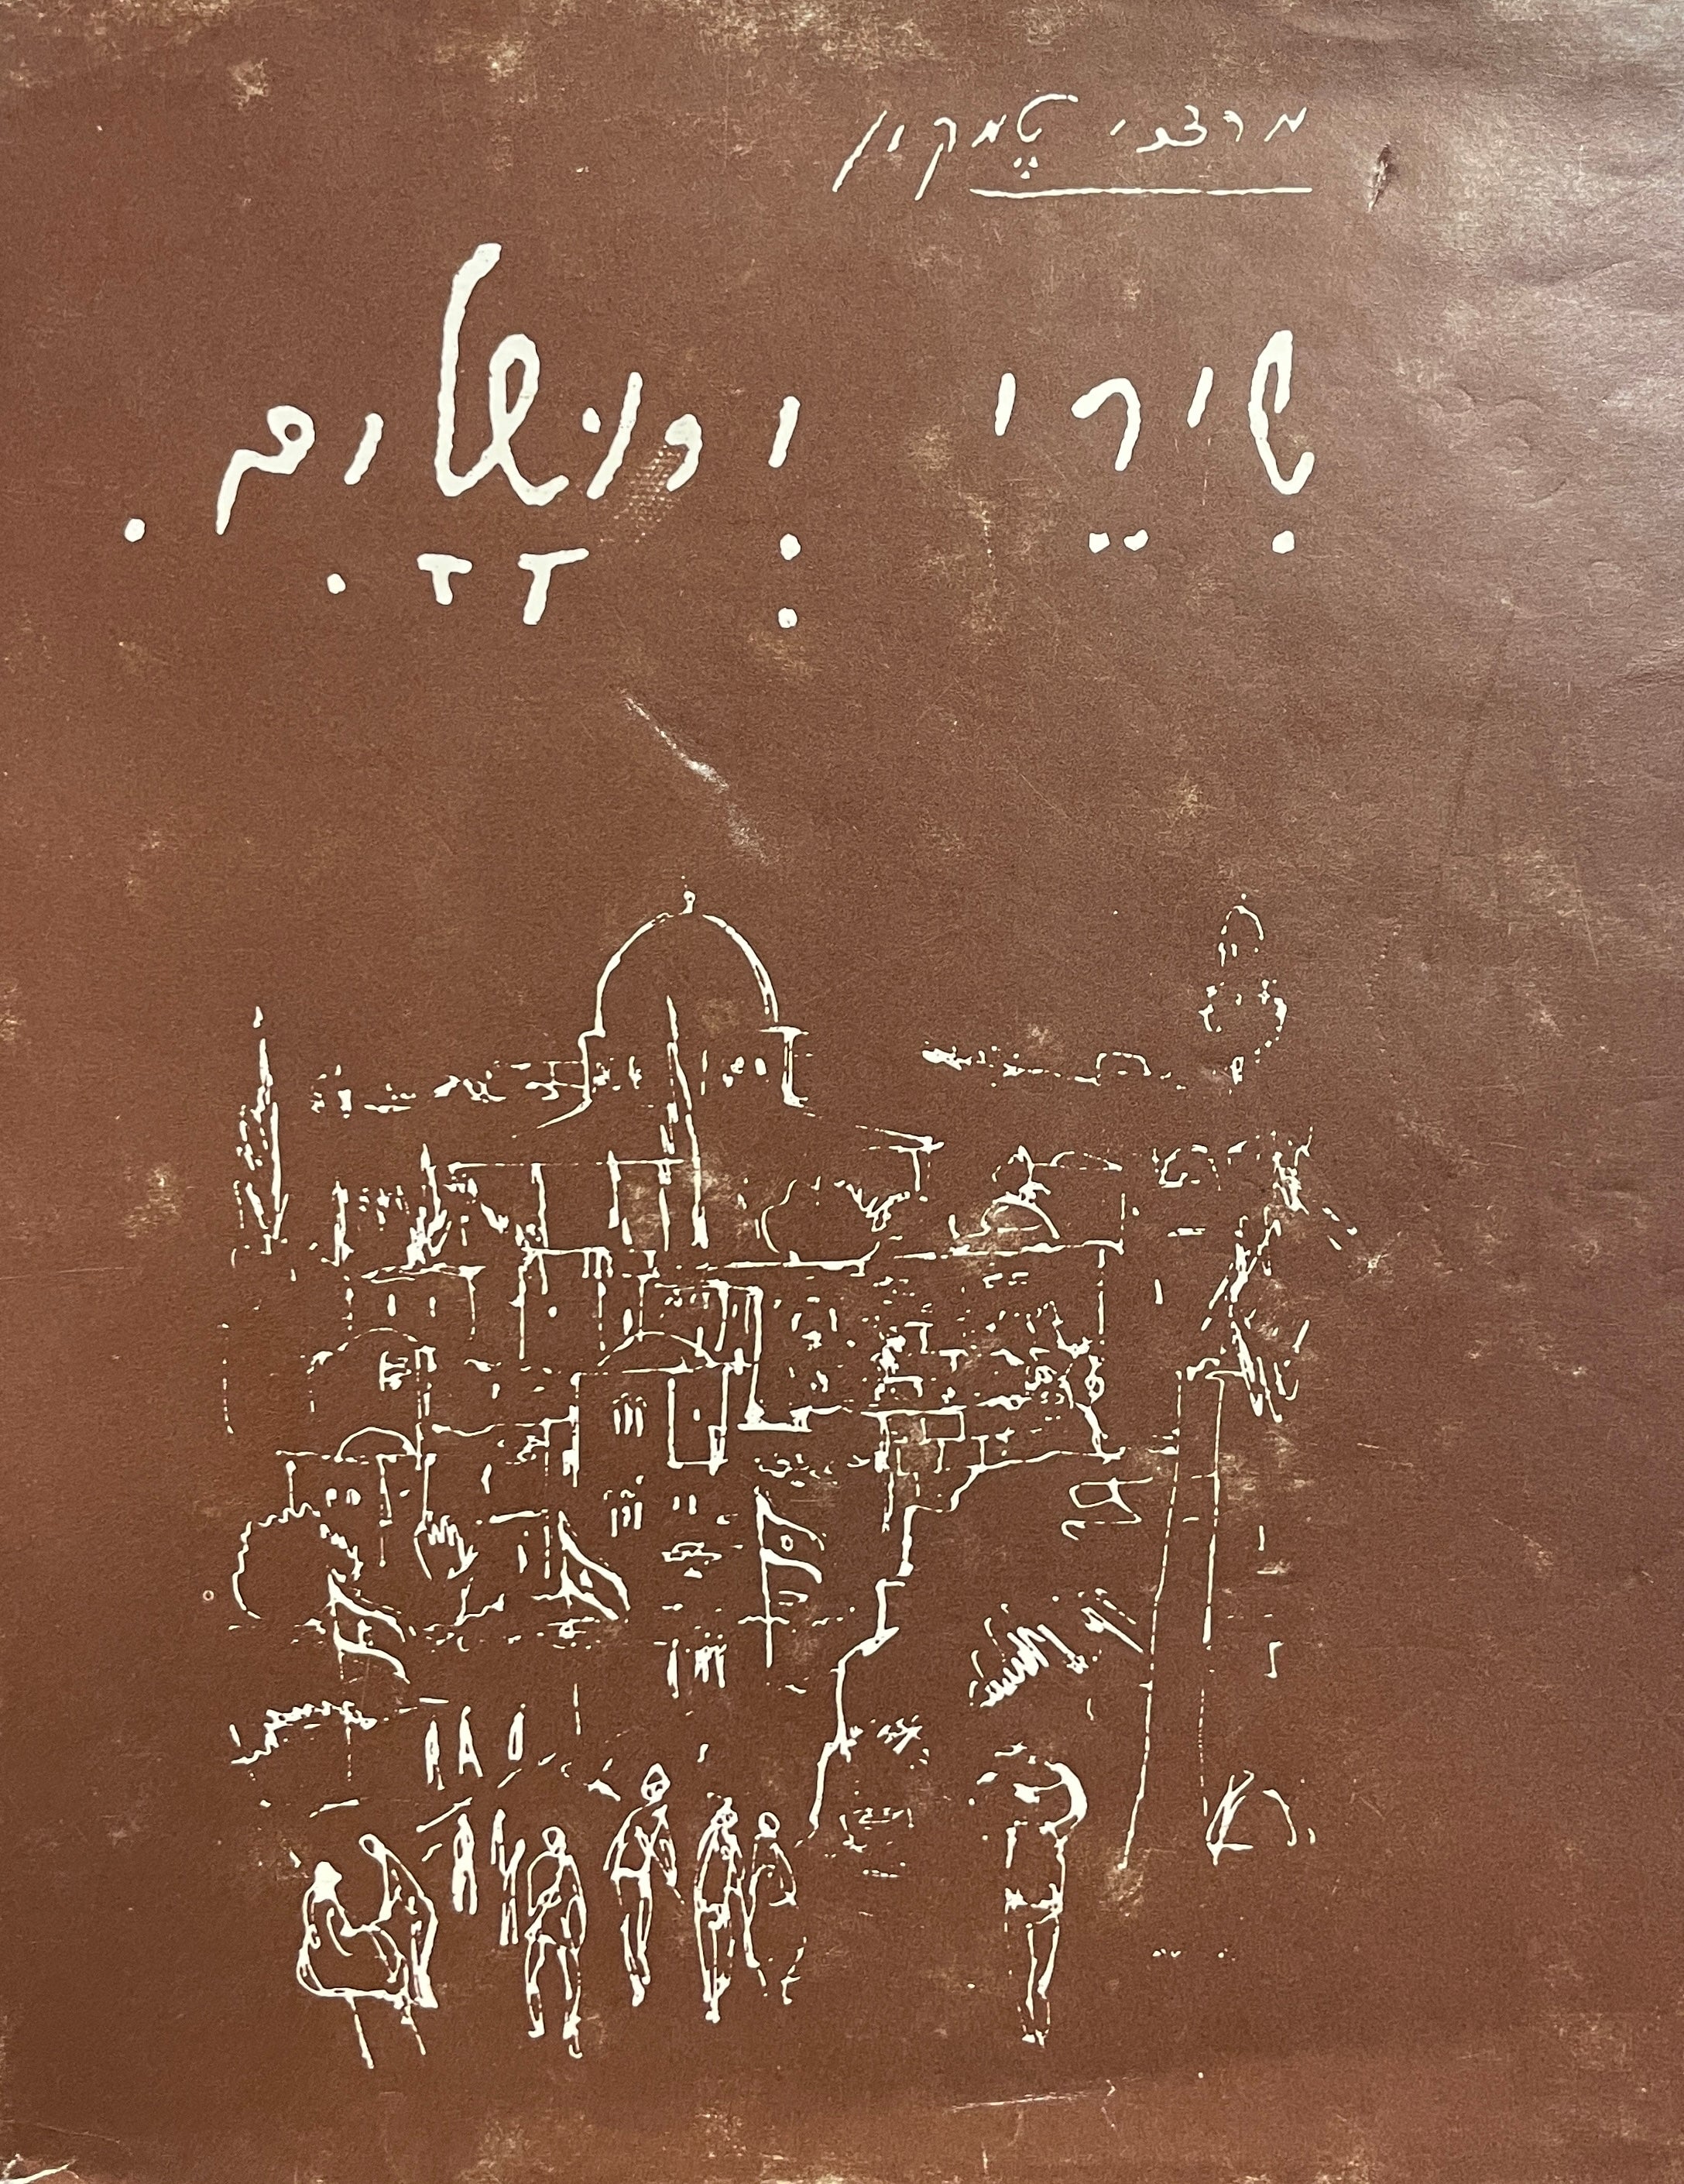 מרדכי טֶמקין
שִירֵי יְרוּשָלָיִם.